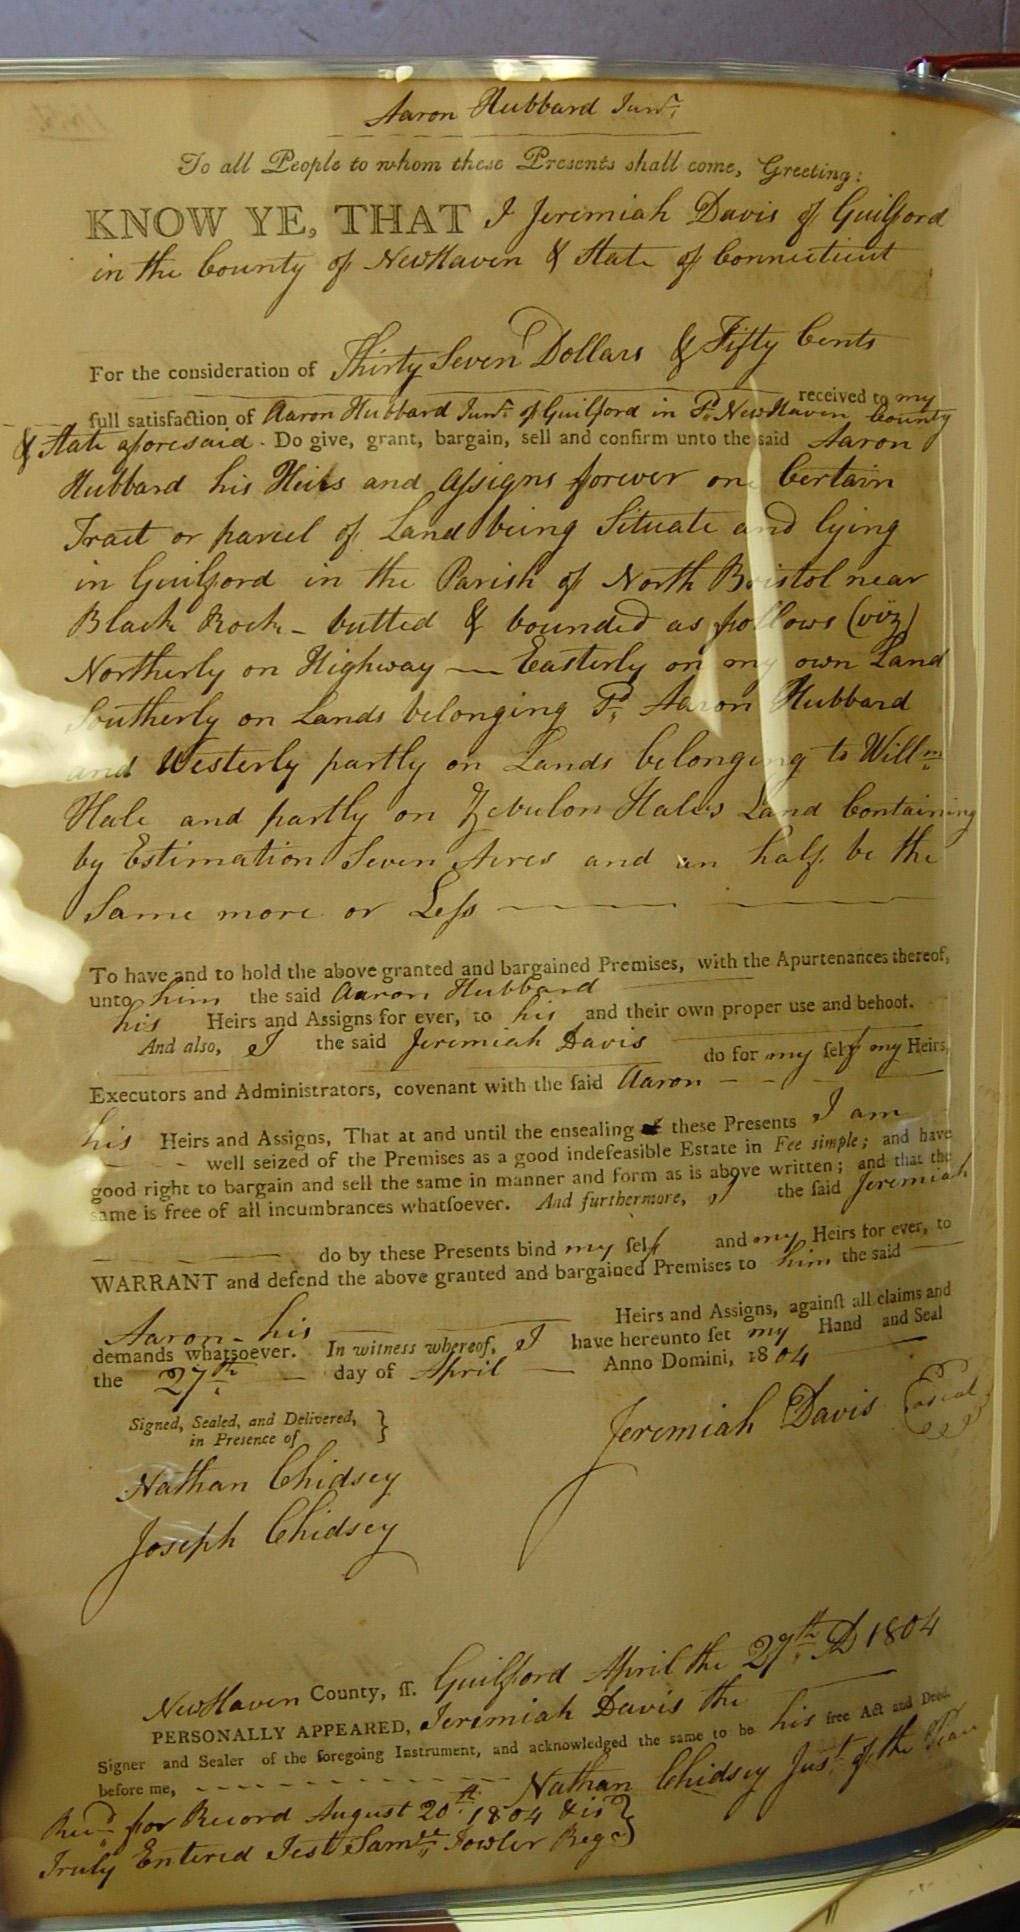 Aaron Hubbard Junr.
To all People to whom these Presents shall come, Greeting:
KNOW YE, THAT I Jeremiah Davis of Guilford
in the County of NewHaven & State of Connecticut
For the consideration of Thirty Seven Dollars & Fifty Cents
received to my
full satisfaction of Aaron Hubbard Junr. of Guilford in sd. NewHaven County
& State aforesaid. Do give, grant, bargain, sell and confirm unto the said Aaron
Hubbard his Heirs and Assigns forever one Certain
Tract or parcel of Land being Situate and lying
in Guilford in the Parish of North Bristol near
Black Rock - butted & bounded as follows (viz)
Northerly on Highway — Easterly on my own Land
Southerly on Lands belonging sd. Aaron Hubbard
and Westerly partly on Lands belonging to Willm.
Hale and partly on Zebulon Hales Land Containing
by Estimation Seven Acres and an half be the
Same more or Less
To have and to hold the above granted and bargained Premises, with the Apurtenances thereof,
unto him the said Aaron Hubbard
his Heirs and Assigns for ever, to his and their own proper use and behoof.
And also, I the said Jeremiah Davis do for my self my Heirs,
Executors and Administrators, covenant with the said Aaron
his Heirs and Assigns, That at and until the ensealing of these Presents I am
well seized of the Premises as a good indefeasible Estate in Fee simple; and have
good right to bargain and sell the same in manner and form as is above written; and that the
same is free of all incumbrances whatsoever. And furthermore, I the said Jeremiah
do by these Presents bind my self and my Heirs for ever, to
WARRANT and defend the above granted and bargained Premises to him the said
Aaron - his Heirs and Assigns, against all claims and
demands whatsoever. In witness whereof, I have hereunto set my Hand and Seal
the 27th. day of April Anno Domini, 1804
Signed, Sealed, and Delivered, }
in Presence of
Jeremiah Davis (a seal)
Nathan Chidsey
Joseph Chidsey
NewHaven County, ss. Guilford April the 27th. AD 1804
PERSONALLY APPEARED, Jeremiah Davis the
Signer and Sealer of the foregoing Instrument, and acknowledged the same to be his free Act and Deed.
before me, Nathan Chidsey Just. of the Peace
Recd. for Record August 20th. 1804 & is }
Truly Entered Test Samll. Fowler Regr.